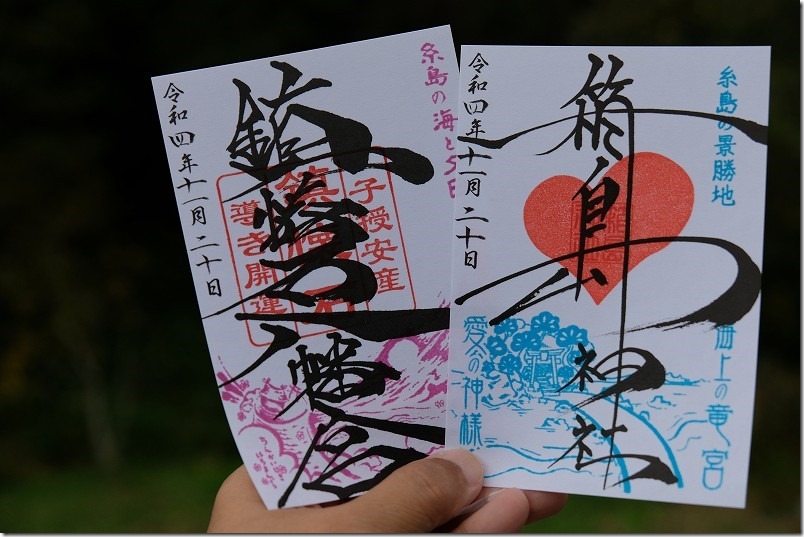 糸島の海と夕日
鎮懐石八幡宮
子授安産
鎮懐石
導き開運
令和四年十一月二十日
糸島の景勝地
海上の竜宮
箱島神社
の神様
令和四年十一月二十日